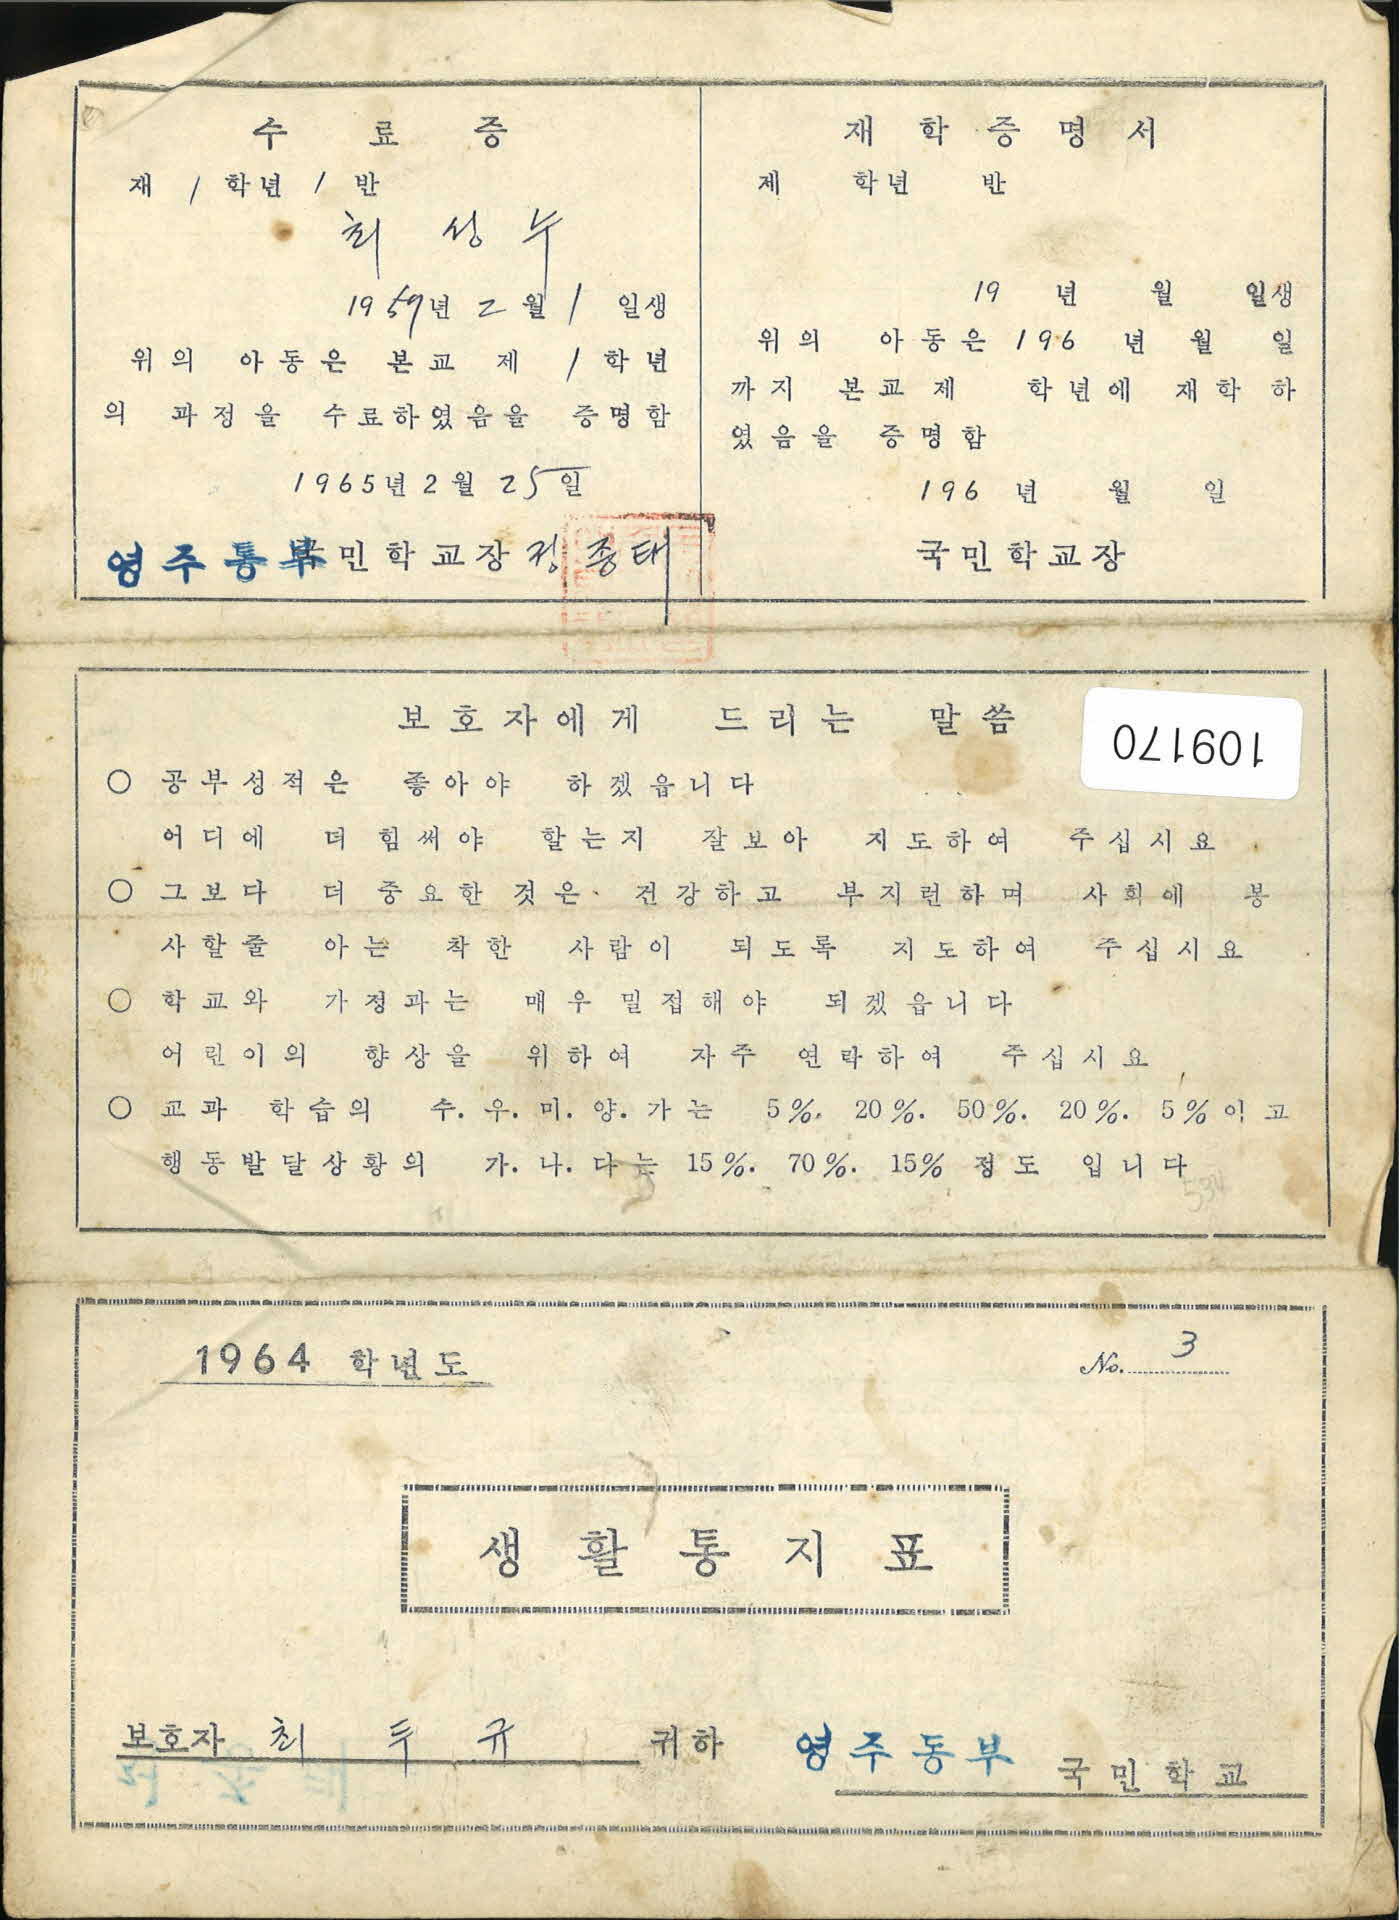 수 료 증
재 1 학년 1 반
최 성 누
1959년 2월 1 일생
위의 아동은 본교 제 1 학년
의 과정을 수료하였음을 증명함
1965년 2월 25일
영주통부국민학교장 정종태
재 학 증 명 서
제 학년 반
19 년 월 일생
위의 아동은 196 년 월 일
까지 본교 제 학년에 재학하
였음을 증명함
196 년 월 일
국민학교장
보호자에게 드리는 말씀
109170
○ 공부성적은 좋아야 하겠읍니다
어디에 더 힘써야 할는지 잘보아 지도하여 주십시요
○ 그보다 더 중요한 것은 건강하고 부지런하며 사회에 봉
사할줄 아는 착한 사람이 되도록 지도하여 주십시요
○ 학교와 가정과는 매우 밀접해야 되겠읍니다
어린이의 향상을 위하여 자주 연락하여 주십시요
○ 교과 학습의 수. 우. 미. 양. 가는 5%. 20%. 50%. 20%. 5% 이고
행동발달상황의 가. 나. 다는 15%. 70%. 15% 정도 입니다
534
1964 학년도
No. 3
생활통지표
보호자 최 두 규 귀하
영주동부 국민학교